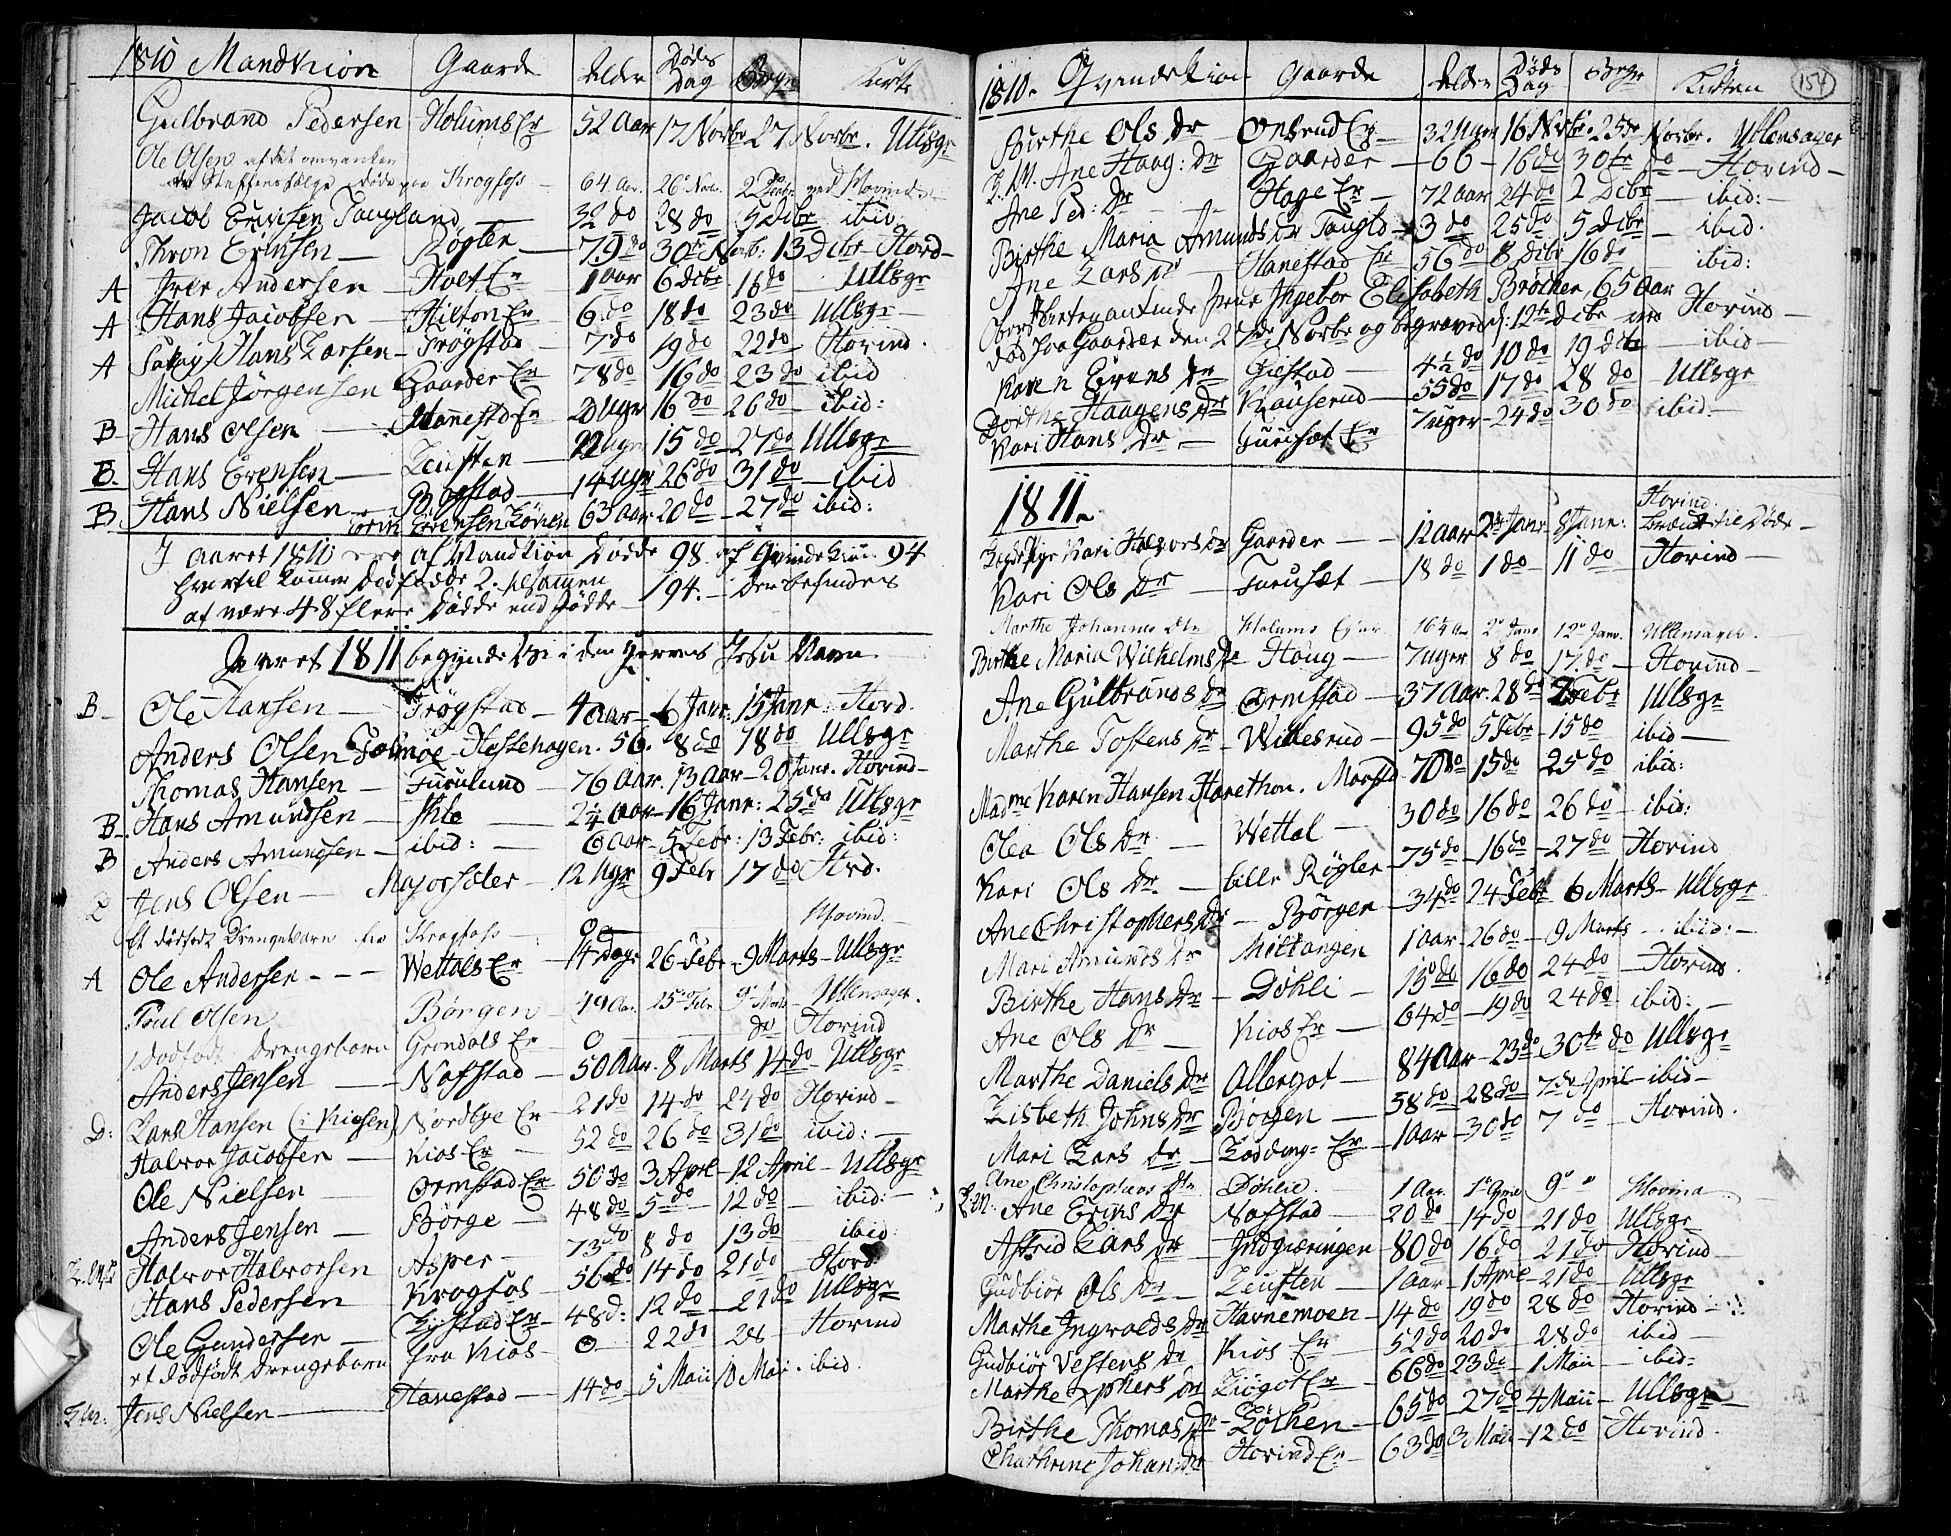 1810 Mandkiön Gaarde Alder Døds Dag Begr. Kirke
Gulbrand Pedersen Holums Er 52 Aar 17 Novbr 27 Novbr. Ullsgr
Ole Olsen af det omvanken
Krogfos 64 Aar. 26 Nov. 2 Decbr ved Hovind
Jacob Ericksen Taugland 32 do 28 do 5 Decbr ibid:
Thron Erensen Røgler 79 do 30te Novb. 13 Decbr Hovd
A Iver Andersen Holt Er 1 aar 6 Decbr 16 do Ullsgr
A Hans Jacobsen Hilton Er 6 do 18 do 23 do Ullsgr
A Hans Larsen Trögstad 7 do 19 do 22 do Hovind.
Michel Jörgensen Gaarder Er 78 do 16 do 23 do ibid
B Hans Olsen Hanestd Er 2 Ugr 16 do 26 do ibid:
B. Hans Erensen Leusten 22 Ugr 15 do 27 do Ullsgr
B Hans Nielsen Bogstad 14 Ugr 26 do 31 do ibid
Erensen 63 aar 20 do 27 do ibid:
I Aaret 1810 ere af Mandkiön Dødde 98. af Qvindekiön 94
hvortil komer Dødfødde 2. tilsamen 194. - Der befindes
at være 48 flere Dødde end Fødde
Aaret 1811 begynde Vi i den Herres Jesu Navn.
B Ole Hansen Trögstad 4 aar 6 Janr: 15 Janr: Hovd.
Anders Olsen Hestehagen. 56. 8 do 18 do Ullsgr
Thomas Hansen Furulund 76 Aar. 13 aar 20 Janr. Hovind
B Hans Amundsen Kilo 2¼ aar 16 Janr: 25 do Ullsgr
B Anders Amundsen ibid: 6 aar 5 Febr: 13 Febr: ibid:
D Jens Olsen Majorseter 12 Ugr 9 Febr 17 do Hovd.
Et dödfödt Drengebarn fra Krogfoss 0 Hovind.
A Ole Andersen Wettals Er 14 Dage 26 Febr 9 Marts Ullsgr
Poul Olsen Børgen 49 Aar. 25 Febr. 9 Marts Ullensager.
1 Dödfödt Drengebarn Grøndals Er 0 do Hovind
Anders Jensen Nafstad 50 Aar. 8 Marts 14 do Ullsgr
D: Lars Hansen Nordbye Er 21 do 14 do 24 do Hovind
Halvor Jacobsen Kios Er 52 do 26 do 31 do ibid:
Ole Nielsen Ormstad Er 50 do 3 April 12 April Ullsgr
Anders Jensen Börge 48 do 5 do 12 do ibid:
Halvor Halvorsen Asper 73 do 8 do 13 do ibid
Hans Pedersen Krogfos 56 do 14 do 21 do Hovd
Ole Gundersen Lystad Er 48 d: 12 do 21 do Ullsgr
et dödfödt Drengebarn fra Kios 0 22 do 28 Hovind
Jens Nielsen Hanestad 14 do 5 Maii 10 Mai. ibid.
1810. Qvindekiön Gaarde Alder Døds Dag Begr Kirken 154
Birthe Ols Dr Onsrud Er 32 Ugr 16 Novbr. 25 de Novbr. Ullensager
Ane Haag: Dr Gaarder 66 16 do 30te do Hovind
Ane Ped: Dr Hage Er 72 aar 24 do 2 Decbr ibid:
Birthe Maria Amunds Dr Taugld 3 do 25 do 5 Decbr ibid.
Ane Lars Dr Hanestad Er 56 do 8 Decbr 16 do ibid:
Frue Ingebor Elisabeth Bröcher 65 aar
död paa Gaarder den 27de Novbr og begraved d: 12te Decbr ved Hovind
Karen Evens Dr Giestad 4½ do 10 do 19 Decbr ibid
Dorthe Haagens Dr Klauserud 55 do 17 do 28 do Ullsgr
Kari Hans Dr Furuset Er 7 uger 24 do 30 do ibid.
1811.
Kari Halvors Dr Gaarder 12 aar 2de Janr 8 Janr: Hovind: Brændt til Døde
Kari Ols Dr Furuset 18 do 1 do 11 do Hovind
Marthe Johannes Dtr Holums Eier 16½ Aar 2 Janr 12 Janr. Ullensager.
Birthe Maria Wilhelms Dr Haug 7 uger 8 do 17 do Hovind
Ane Gulbrands Dr Ormstad 37 Aar 28 do Febr Ullsgr
Marthe Tostens Dr Wilbesrud 95 do 5 Febr 15 do ibid
Madme Karen Hansen Harethon. Morstd 70 do 15 do 25 do ibid:
Olea Ols Dr Wettal 30 do 16 do 26 do ibid:
Kari Ols Dr lille Røgler 75 do 16 do 27 do Hovind
Ane Christophers Dr Börgen 34 do 24 Febr 6 Marts Ullsgr
Mari Amunds Dr Miltangen 1 aar 26 do 9 Marts ibid:
Birthe Hans Dr Döhli 15 do 16 do 24 do Hovind.
Ane Ols Dr Kios Er 64 do 19 do 24 do ibid:
Marthe Daniels Dr Allergot 84 aar 23 do 30te do Ullsgr
Lisbeth Johns Dr Börgen 58 do 28 do 7 de April ibid
Mari Lars Dr Lodding Er 1 aar 30 do 7 do Hovind.
Ane Christophers Dtr Döhlie 1 Aar 1 April 9 " Hovind
Ane Ericks Dr Nafstad 20 do 14 do 21 do Ullsgr
Astrid Lars Dr Indgiæringen 80 do 16 do 21 do Hovind
Gudbiör Ols Dr Leusten 1 aar 1 April 21 do Ullsgr
Marthe Ingvolds Dr Havnemoen 14 do 19 do 28 do Hovind
Gudbiör Vestens Dr Kios Er 52 do 20 do 28 do ibid
Marthe Dr Liögot Er 66 do 23 do 1 Maii ibid:
Birthe Thomas Dr Löchen 65 do 27 do 4 Maii Ullsgr
Chathrine Johan: Dr Hovind Er 63 do 3 Maii 12 do Hovind.